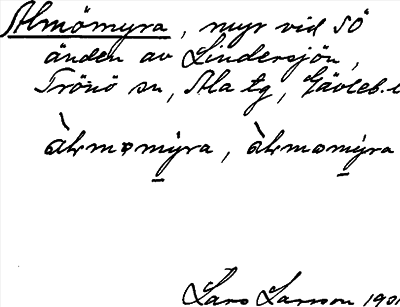 Almömyra, myr vid SÖ
änden av Lindersjön,
Trönö sn, Ala tg, Gävleb. l
Lars Larsson 190